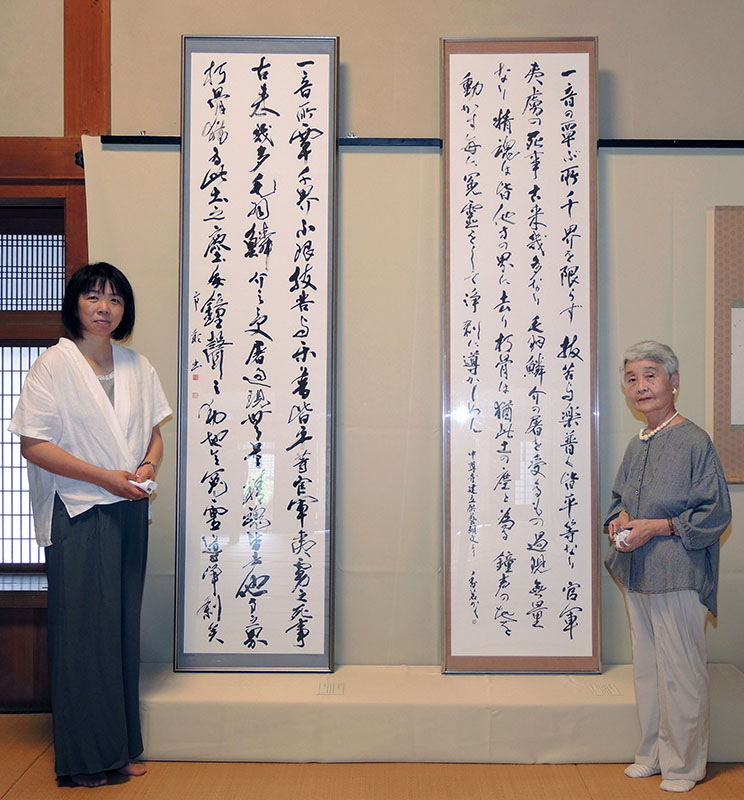 一音の覃ぶ所千界を限らず 抜苦与楽普く皆平等なり 官軍
夷虜の死事古来幾多なり 毛羽鱗介の屠を受くるもの過現無量
なり 精魂は皆他方の界に去り朽骨は猶此土の塵と為る 鐘声の地を
動かす毎に冤霊をして浄刹に導かしめん
中尊寺建立供養願文より
一音所覃千界不限抜苦与楽普皆平等官軍夷虜之死事
古来幾多毛羽鱗介之受屠過現無量精魂皆去他方之界
朽骨猶為此土之塵毎鐘聲之動地令冤霊導浄刹矣